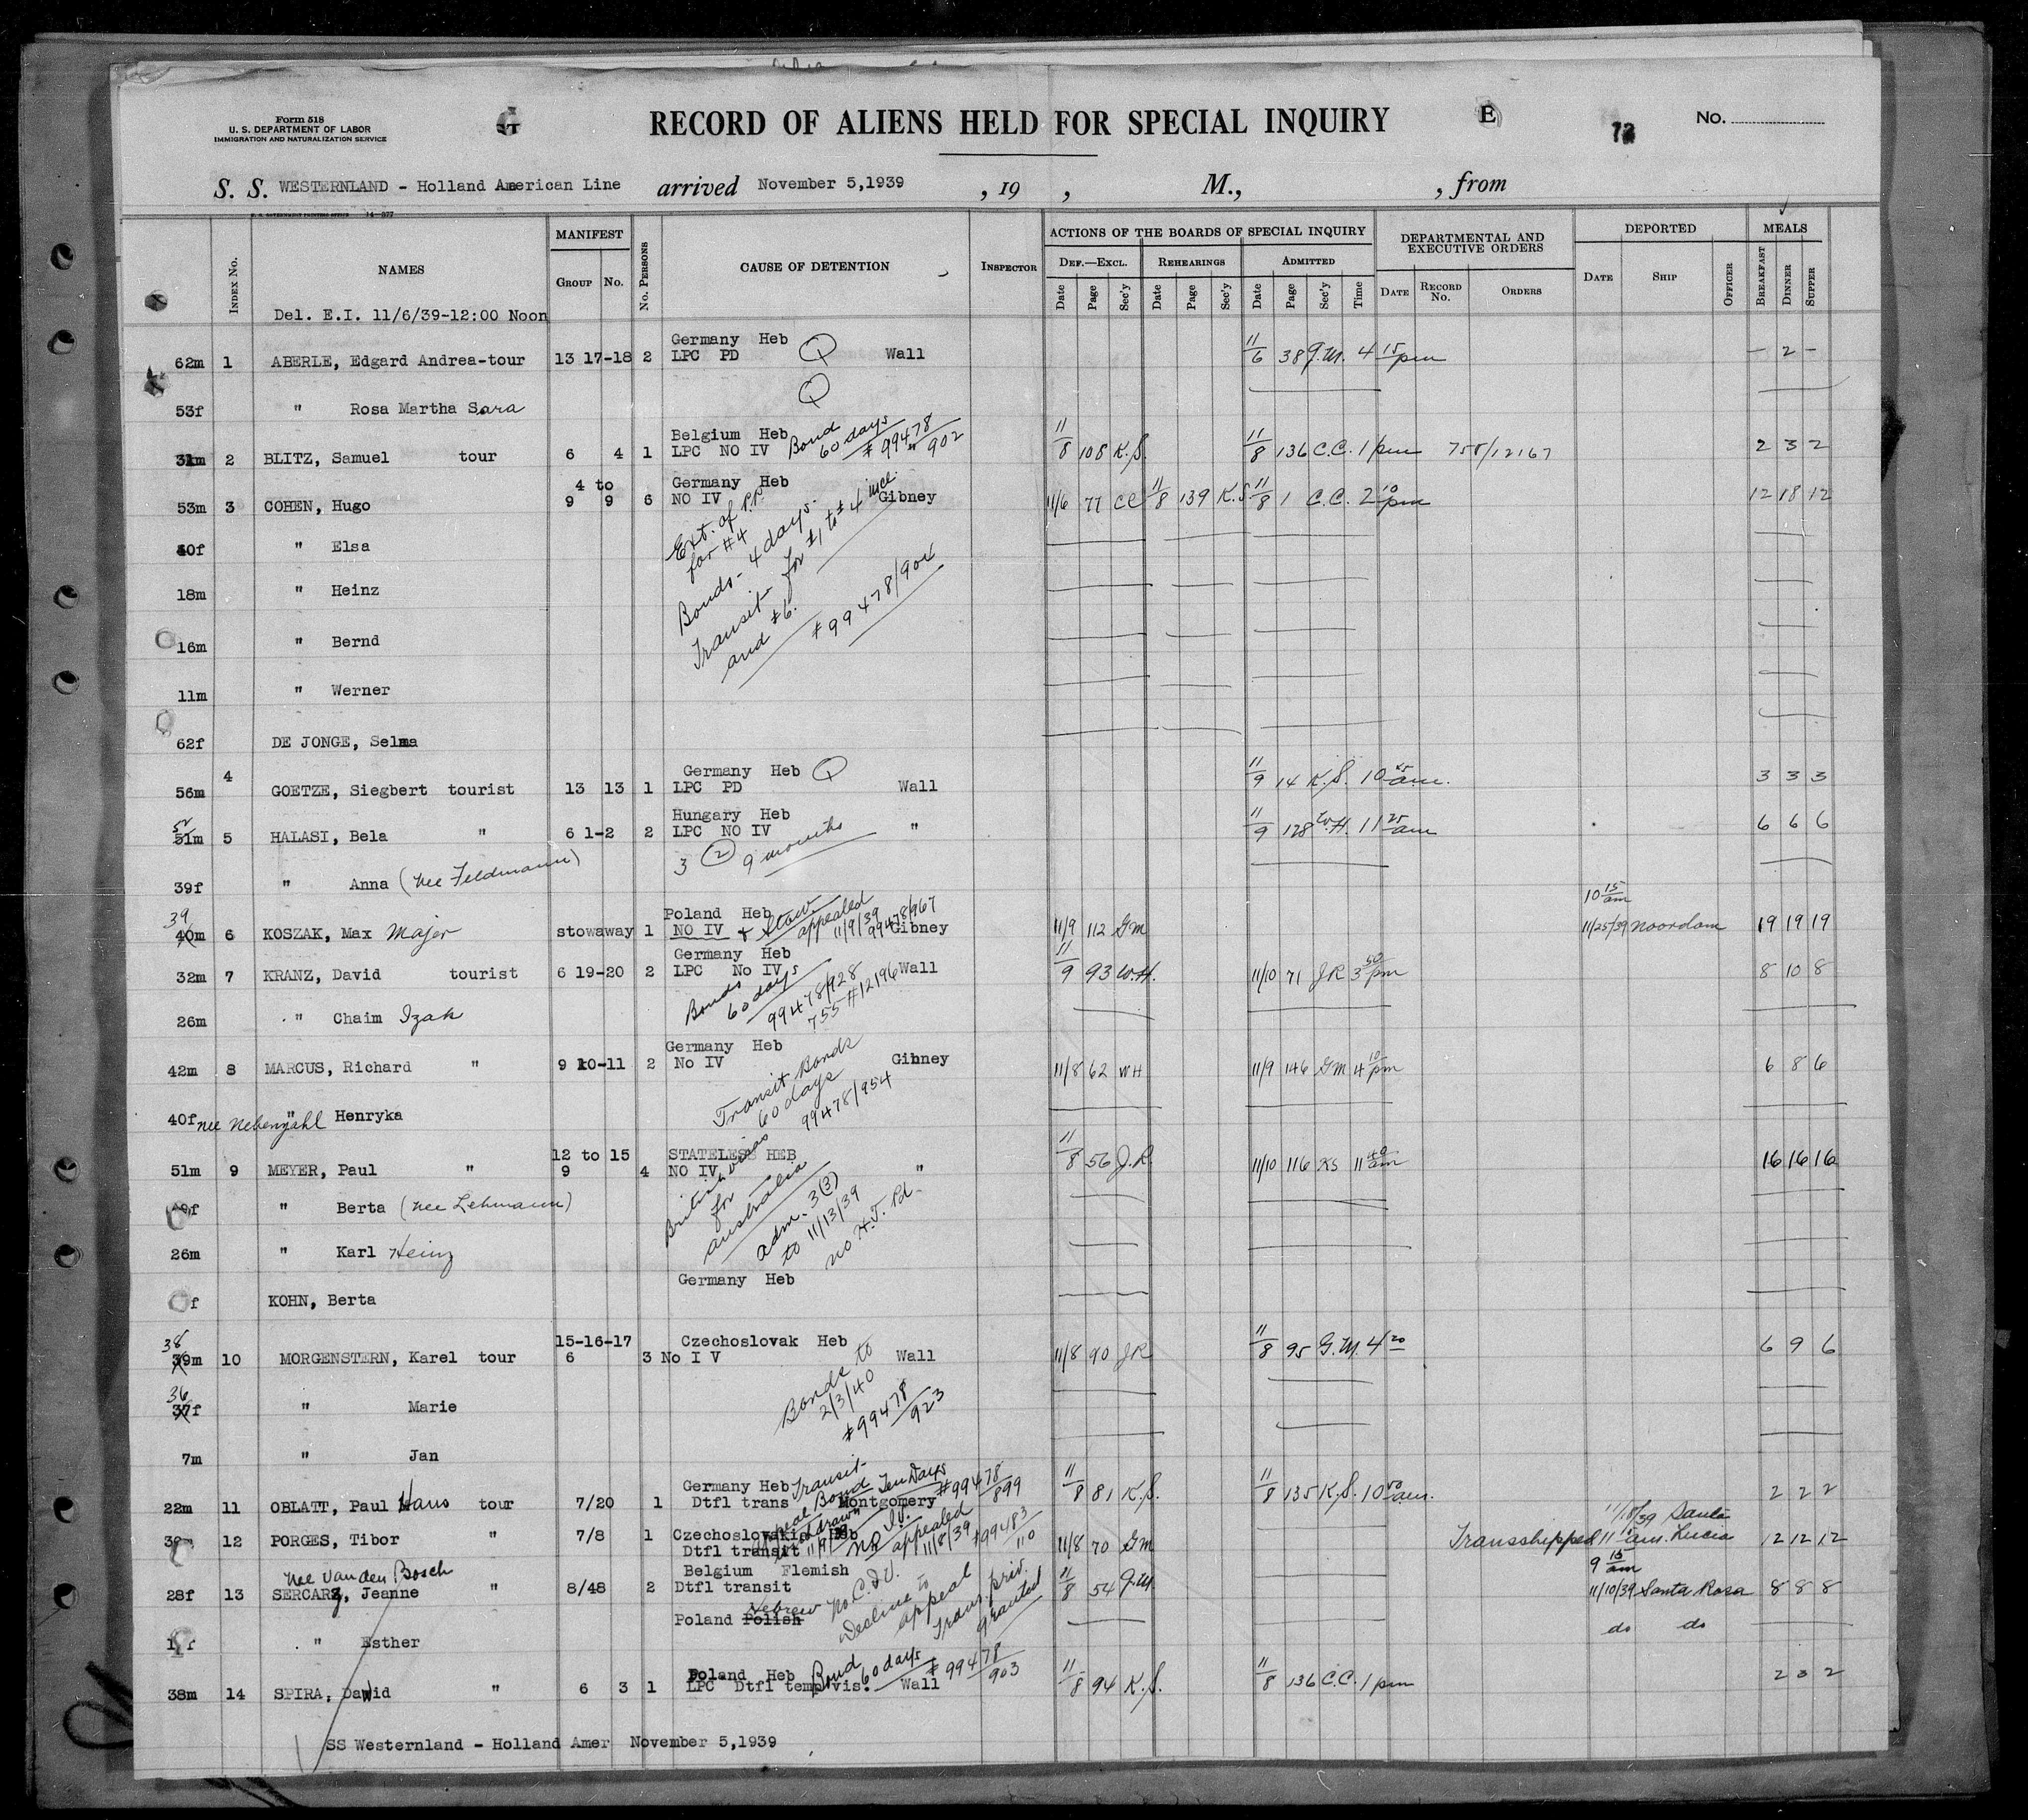 Form 518
U. S. DEPARTMENT OF LABOR
IMMIGRATION AND NATURALIZATION SERVICE
RECORD OF ALIENS HELD FOR SPECIAL INQUIRY
E
72
No.
S. S. WESTERNLAND - Holland American Line arrived November 5,1939 , 19 , M., , from
U. S. GOVERNMENT PRINTING OFFICE 14—877
Index No.
NAMES
MANIFEST
Group No.
No. Persons
CAUSE OF DETENTION
Inspector
ACTIONS OF THE BOARDS OF SPECIAL INQUIRY
Def.—Excl. Rehearings Admitted
Date Page Sec'y Date Page Sec'y Date Page Sec'y Time
DEPARTMENTAL AND EXECUTIVE ORDERS
Date Record No. Orders
DEPORTED
Date Ship Officer
MEALS
Breakfast Dinner Supper
Del. E.I. 11/6/39-12:00 Noon
Germany Heb
62m 1 ABERLE, Edgard Andrea-tour 13 17-18 2 LPC PD Q Wall 11/6 38 J.M. 4 15 pm - 2 -
Q
53f " Rosa Martha Sara
Belgium Heb Bond 60 days # 99478/902
31m 2 BLITZ, Samuel tour 6 4 1 LPC NO IV 11/8 108 K.S. 11/8 136 C.C. 1 pm 755/12167 2 3 2
4 to Germany Heb
53m 3 COHEN, Hugo 9 9 6 NO IV Gibney 11/6 77 CC 11/8 139 K.S 11/8 1 C.C. 2 10 pm 12 18 12
Ext. of P.P. for #4
40f " Elsa
Bonds - 4 days. Transit for #1 to #4 incl. and #6.
18m " Heinz
# 99478/904
16m " Bernd
11m " Werner
62f DE JONGE, Selma
Germany Heb Q
56m 4 GOETZE, Siegbert tourist 13 13 1 LPC PD Wall 11/9 14 K.S. 10 45 a.m. 3 3 3
Hungary Heb
52 51m 5 HALASI, Bela " 6 1-2 2 LPC NO IV " 11/9 128 W.H. 11 25 am 6 6 6
3 (2) 9 months
39f " Anna (nee Feldmann)
Poland Heb
39 40m 6 KOSZAK, Max Majer stowaway 1 NO IV & Stow appealed 11/9/39 99478/967 Gibney 11/9 112 GM 10 15 am 11/25/39 Noordam 19 19 19
Germany Heb
32m 7 KRANZ, David tourist 6 19-20 2 LPC No IV Wall 11/9 93 W.H. 11/10 71 JR 3 50 pm 8 10 8
Bonds 60 days 99478/928 755 #12196
26m " Chaim Izak
Germany Heb
42m 8 MARCUS, Richard " 9 10-11 2 No IV Gibney 11/8 62 WH 11/9 146 GM 4 10 pm 6 8 6
Transit Bonds 60 days 99478/954
40f nee Nebenzahl " Henryka
12 to 15 STATELESS HEB
51m 9 MEYER, Paul " 9 4 NO IV " 11/8 56 J.R. 11/10 116 KS 11 40 am 16 16 16
British visas for Australia
f " Berta (nee Lehmann)
adm. 3(3) to 11/13/39 no H.T. Pd.
26m " Karl Heinz
Germany Heb
f KOHN, Berta
15-16-17 Czechoslovak Heb
38 39m 10 MORGENSTERN, Karel tour 6 3 No I V Wall 11/8 90 JR 11/8 95 G.M. 4 20 6 9 6
Bonds to 2/3/40 # 99478/923
36 37f " Marie
7m " Jan
Germany Heb Transit Bond Ten Days #99478/899
22m 11 OBLATT, Paul Hans tour 7/20 1 Dtfl trans Montgomery 11/8 81 K.S. 11/8 135 K.S. 10 50 am. 2 2 2
11/18/39 Santa Lucia
12 PORGES, Tibor " 7/8 1 Czechoslovakia Heb Dtfl transit appealed 11/8/39 #99483/110 11/8 70 GM Transshipped 11 am. 12 12 12
appeal withdrawn
nee Van den Bosch
Belgium Flemish 9 15 am
28f 13 SERCARZ, Jeanne " 8/48 2 Dtfl transit 11/8 54 J.M. 11/10/39 Santa Rosa 8 8 8
No C.I.V. Decline to appeal Trans. priv. granted
Poland Polish Hebrew
" Esther do do
Poland Heb Bond 60 days # 99478/903
38m 14 SPIRA, Dawid " 6 3 1 LPC Dtfl temp vis. Wall 11/8 94 K.S. 11/8 136 C.C. 1 pm 2 3 2
SS Westernland - Holland Amer November 5,1939